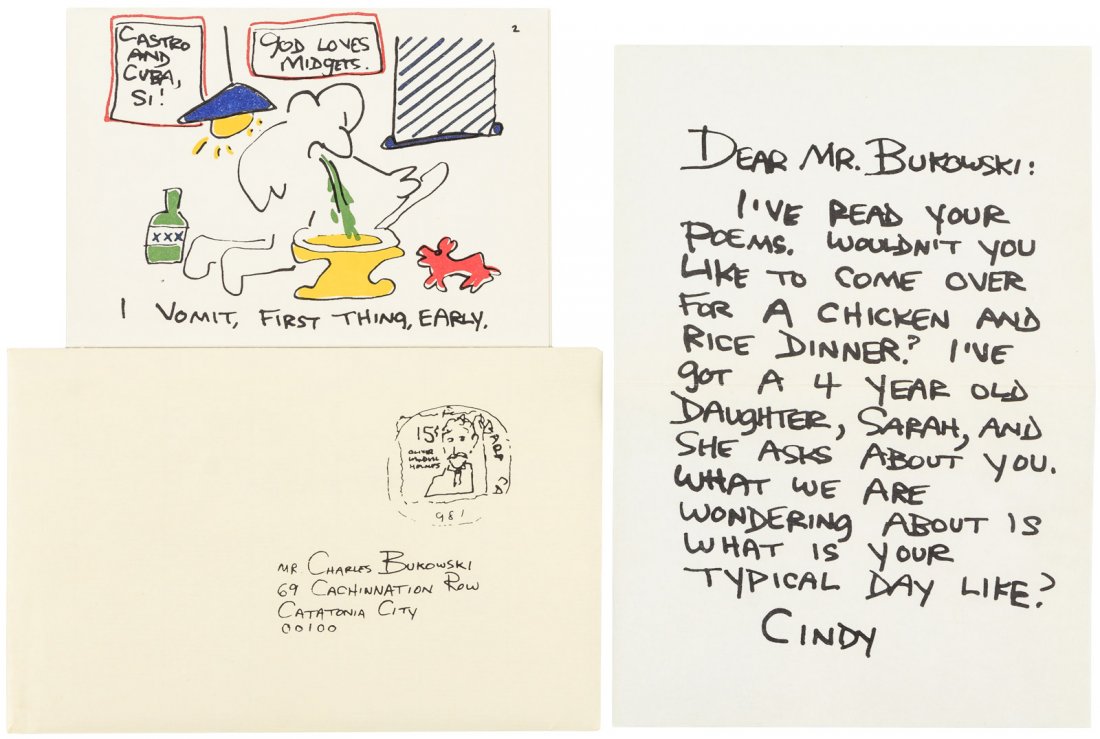 CASTRO
AND
CUBA,
SI!
GOD LOVES
MIDGETS.
2
XXX
I VOMIT, FIRST THING, EARLY.
15¢
OLIVER
WENDELL
HOLMES
981
MR CHARLES BUKOWSKI
69 CACHINNATION ROW
CATATONIA CITY
00100
DEAR MR. BUKOWSKI:
I'VE READ YOUR
POEMS. WOULDN'T YOU
LIKE TO COME OVER
FOR A CHICKEN AND
RICE DINNER? I'VE
GOT A 4 YEAR OLD
DAUGHTER, SARAH, AND
SHE ASKS ABOUT YOU.
WHAT WE ARE
WONDERING ABOUT IS
WHAT IS YOUR
TYPICAL DAY LIKE?
CINDY